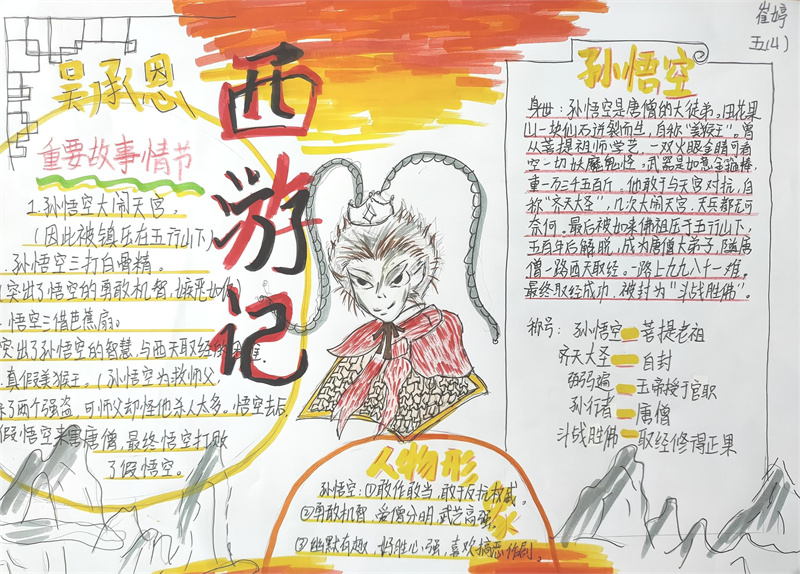 崔婷
五(4)
西游记
吴承恩
重要故事情节
1.孙悟空大闹天宫，
(因此被镇压在五行山下)
.孙悟空三打白骨精。
突出了悟空的勇敢机智、嫉恶如仇
.悟空三借芭蕉扇。
突出了悟空的智慧,与西天取经的
.真假美猴王。(孙悟空为救师父,
杀了两个强盗，可师父却怪他杀人太多。悟空走后,
假悟空来害唐僧,最终悟空打败
了假悟空。
孙悟空
身世：孙悟空是唐僧的大徒弟,由花果
山一块仙石迸裂而生，自称“美猴王”。曾
从菩提祖师学艺，一双火眼金睛可看
空一切妖魔鬼怪，武器是如意金箍棒，
重一万三千五百斤，他敢于与天宫对抗，自
称“齐天大圣”，几次大闹天宫，天兵都无可
奈何。最后被如来佛祖压于五行山下，
五百年后解脱，成为唐僧大弟子，随唐
僧一路西天取经。一路上九九八十一难，
最终取经成功，被封为“斗战胜佛”。
称号：孙悟空 菩提老祖
齐天大圣 自封
弼弼遍 玉帝授予官职
孙行者 唐僧
斗战胜佛 取经修得正果
人物形象
孙悟空：①敢作敢当，敢于反抗权威。
②勇敢机智，爱憎分明，武艺高强。
③幽默有趣，好胜心强，喜欢搞恶作剧。